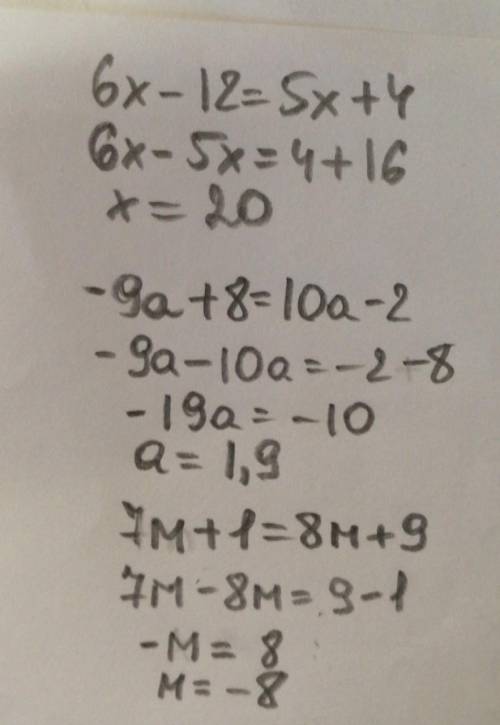 6x - 12 = 5x + 4
6x - 5x = 4 + 16
x = 20
-9a + 8 = 10a - 2
-9a - 10a = -2 - 8
-19a = -10
a = 1,9
7м + 1 = 8м + 9
7м - 8м = 9 - 1
-м = 8
м = -8